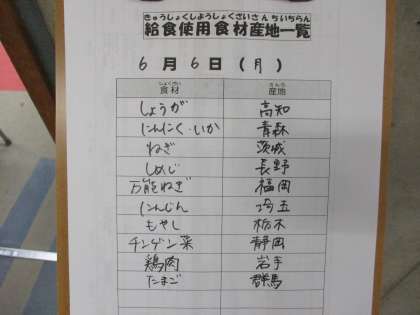 きゅうしょくしようしょくざいさんちいちらん
給食使用食材産地一覧
6月6日(月)
しょくざい さんち
食材 産地
しょうが 高知
にんにく・いか 青森
ねぎ 茨城
しめじ 長野
万能ねぎ 福岡
にんじん 埼玉
もやし 栃木
チンゲン菜 静岡
鶏肉 岩手
たまご 群馬